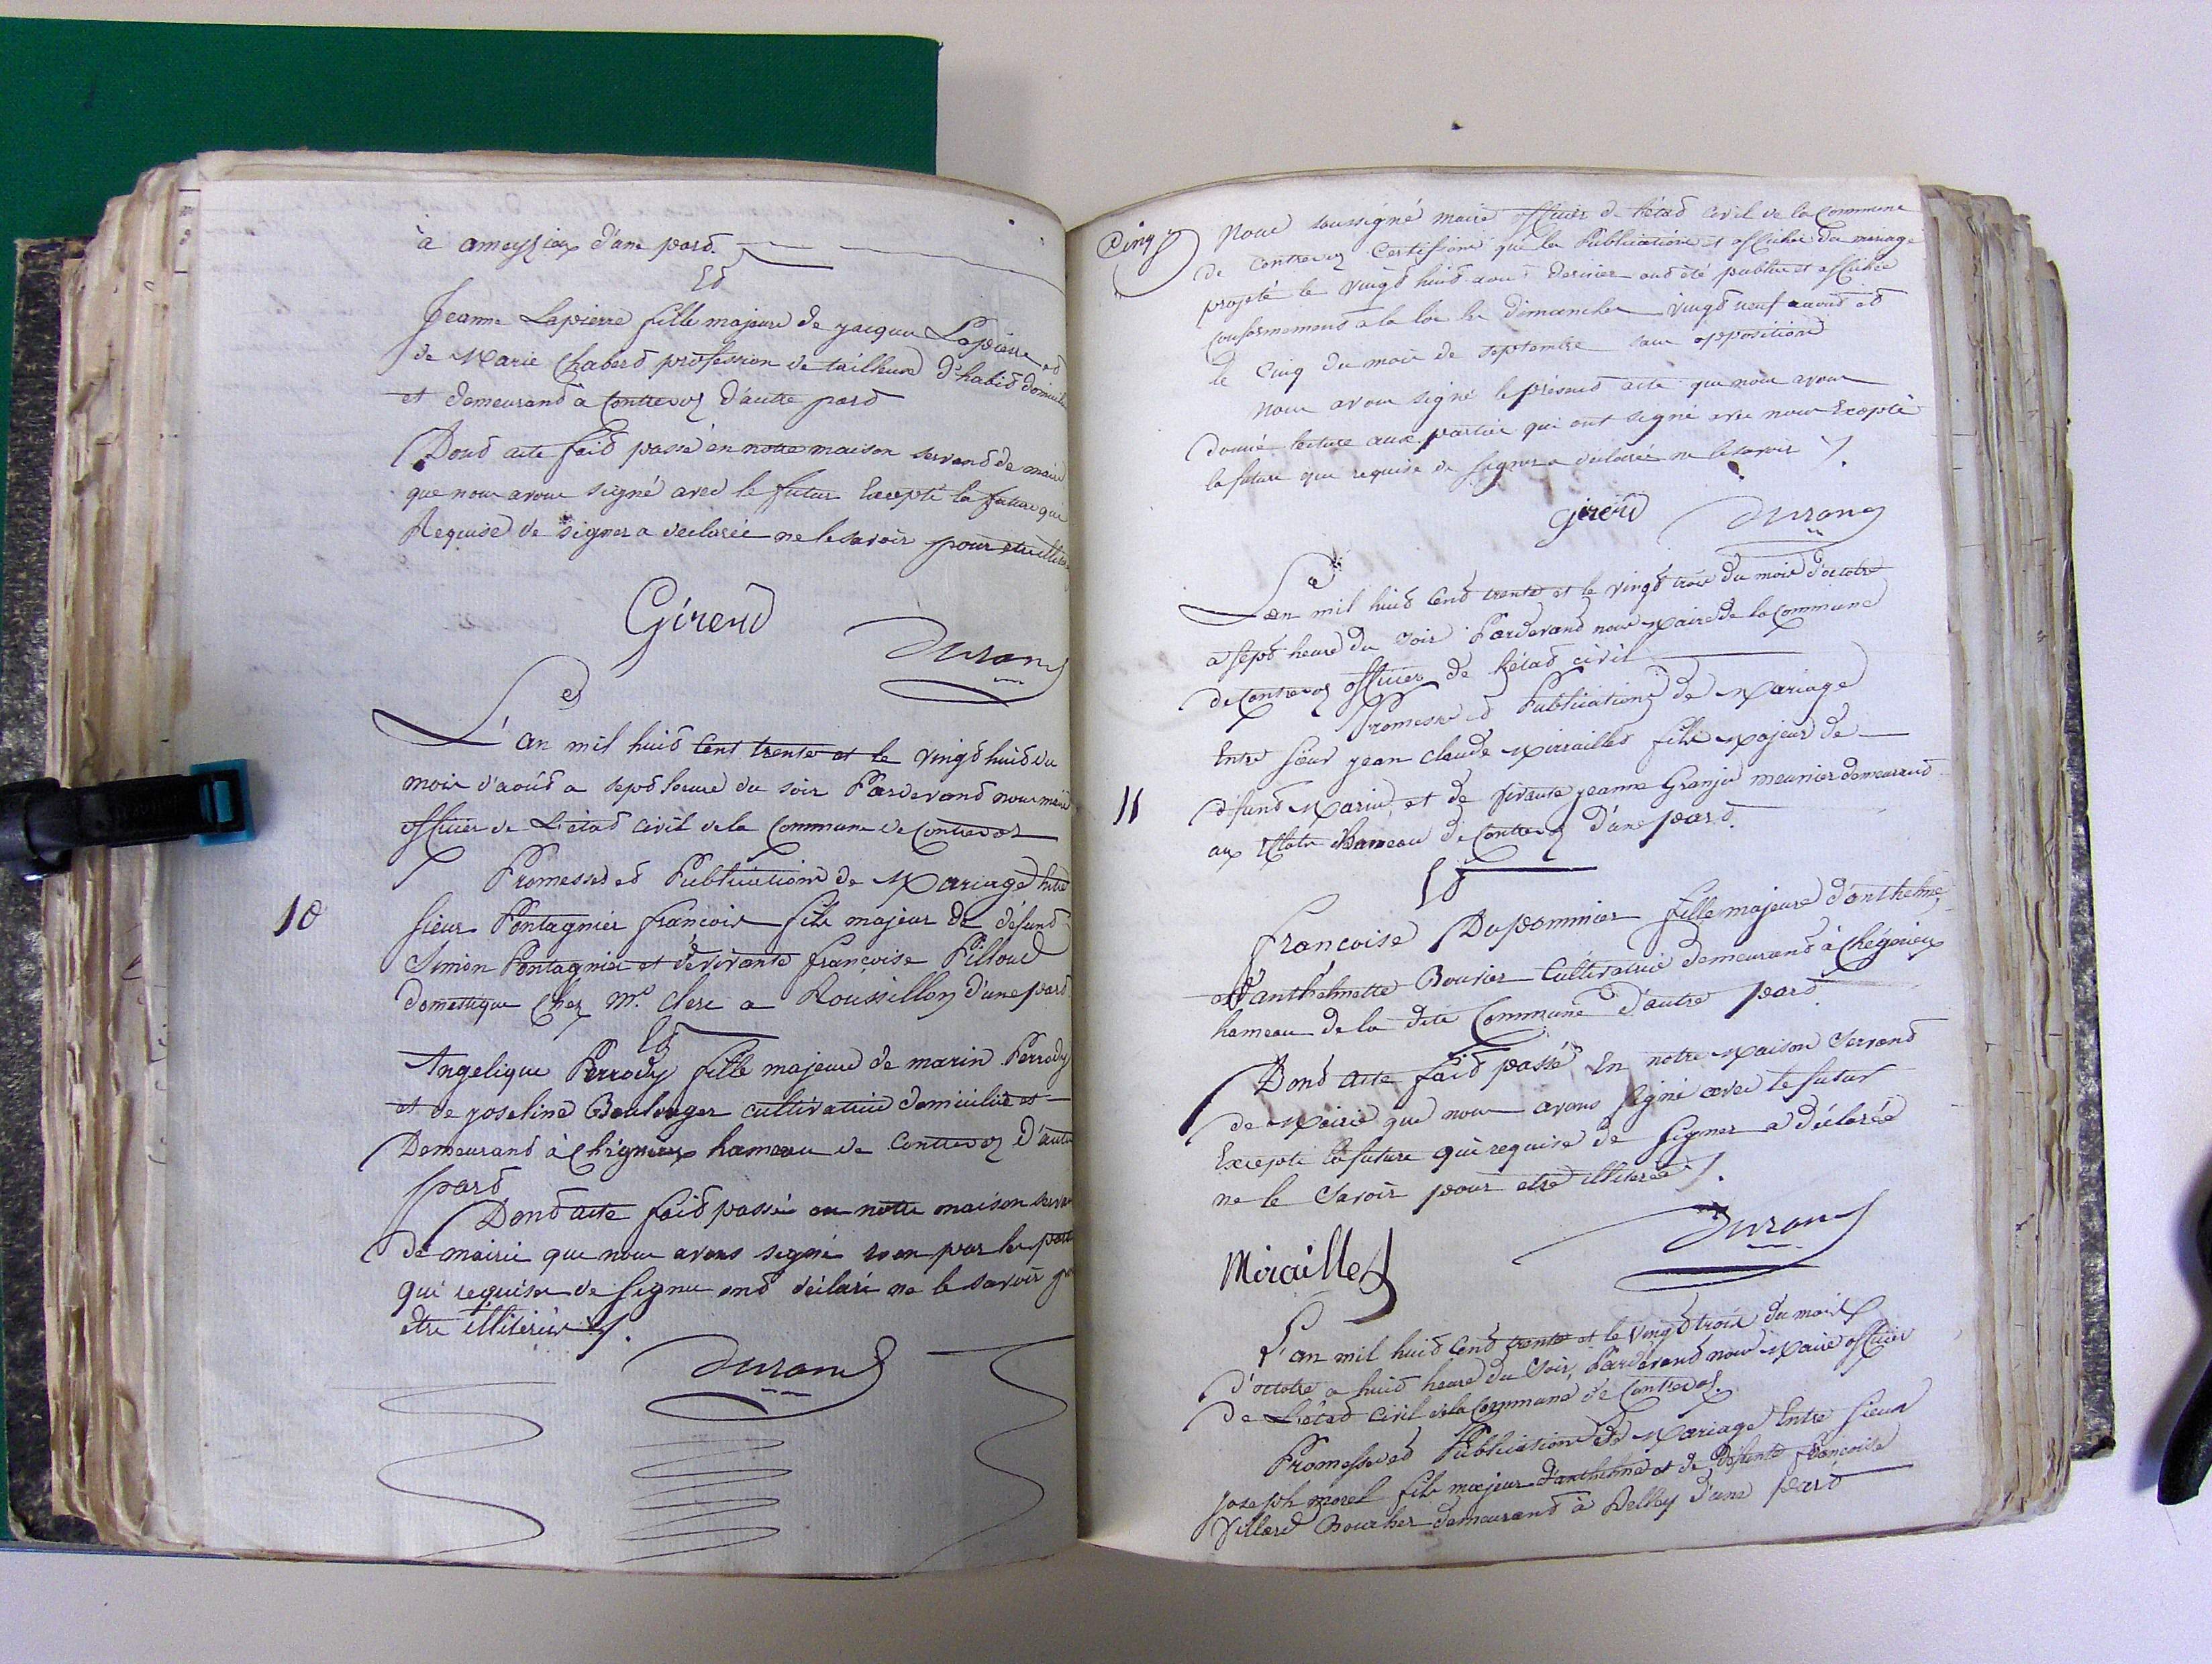 à ameyzieux d'une pard.
Ed
Jeanne Lapierre fille majeure de jacque Lapierre ed
de Marie Chaberd profession de tailleuse d'habid domicilié
et demeurand à Contrevoz d'autre pard
Dond acte faid passé en notre maison servand de mairie
que nous avons signé avec le futur Excepté la future qui
Requise de signer a declarée ne le savoir pour etre illit
Girerd
Durand
10
L'an mil huid Cent trente et le vingd huid du
mois d'aoûd a sepd heure du soir Pardevand nous maire
officier de L'étad civil de la Commune de Contrevoz
Promesses ed Publications de Mariage Entre
sieur Pontagnier francois fils majeur de défund
Simon Pontagnier et de vivante françoise Pilloud
domestique Chez Mr. Clerc a Roussillon d'une pard
Ed
Angelique Perrody fille majeure de marin Perrody
et de joseline Boulanger cultivatrice domiciliée et
Demeurand à Chégnieux hameau de Contrevoz d'autre
pard
Dond acte faid passé en notre maison servand
de mairie que nous avons signé non par les parties
qui requises de signer ond déclaré ne le savoir pour
etre illiterés /.
Durand
Cinq
Nous soussigné maire officier de l'étad civil de la Commune
de Contrevoz Certifions que les Publications et affiches du mariage
projeté le vingd huid aoud dernier ond été publiée et affichée
conformemend a la loi les dimanches vingd neuf aoud ed
le Cinq du mois de septembre sans opposition
Nous avons signé le présend acte que nous avons
donné lecture aux parties qui ont signé avec nous Excepté
la future que requise de signer a déclarée ne le savoir /.
Girerd Durand
11
L'an mil huid Cend trente et le vingd trois du mois d'octobre
a sepd heure du soir Pardevand nous Maire de la Commune
de Contrevoz officier de L'étad civil
Promesse ed Publications de Mariage
Entre sieur jean claude Mirailled fils Majeur de
défund Marin, et de vivante jeanne Granjer meunier demeurand
aux hameau de Contrevoz d'une pard.
Ed
Françoise Dupommier fille majeure d'anthelme
et d'anthelmette Bouvier Cultivatrice demeurand à Chégnieux
hameau de la dite Commune d'autre pard.
Dond acte faid passé En notre Maison Servand
de Mairie que nous avons signé avec le futur
Excepté la future qui requise de signer a déclarée
ne le savoir pour etre illiterée /.
Durand
Miraillet
L'an mil huid Cend trente et le vingd trois du mois
d'octobre a huid heure du Soir, Pardevand nous Maire officier
de L'étad Civil de la Commune de Contrevoz.
Promesse ed Publication de Mariage Entre sieur
joseph morel fils majeur d'anthelme et de défunte françoise
Villard Boucher demeurand à Belley d'une pard